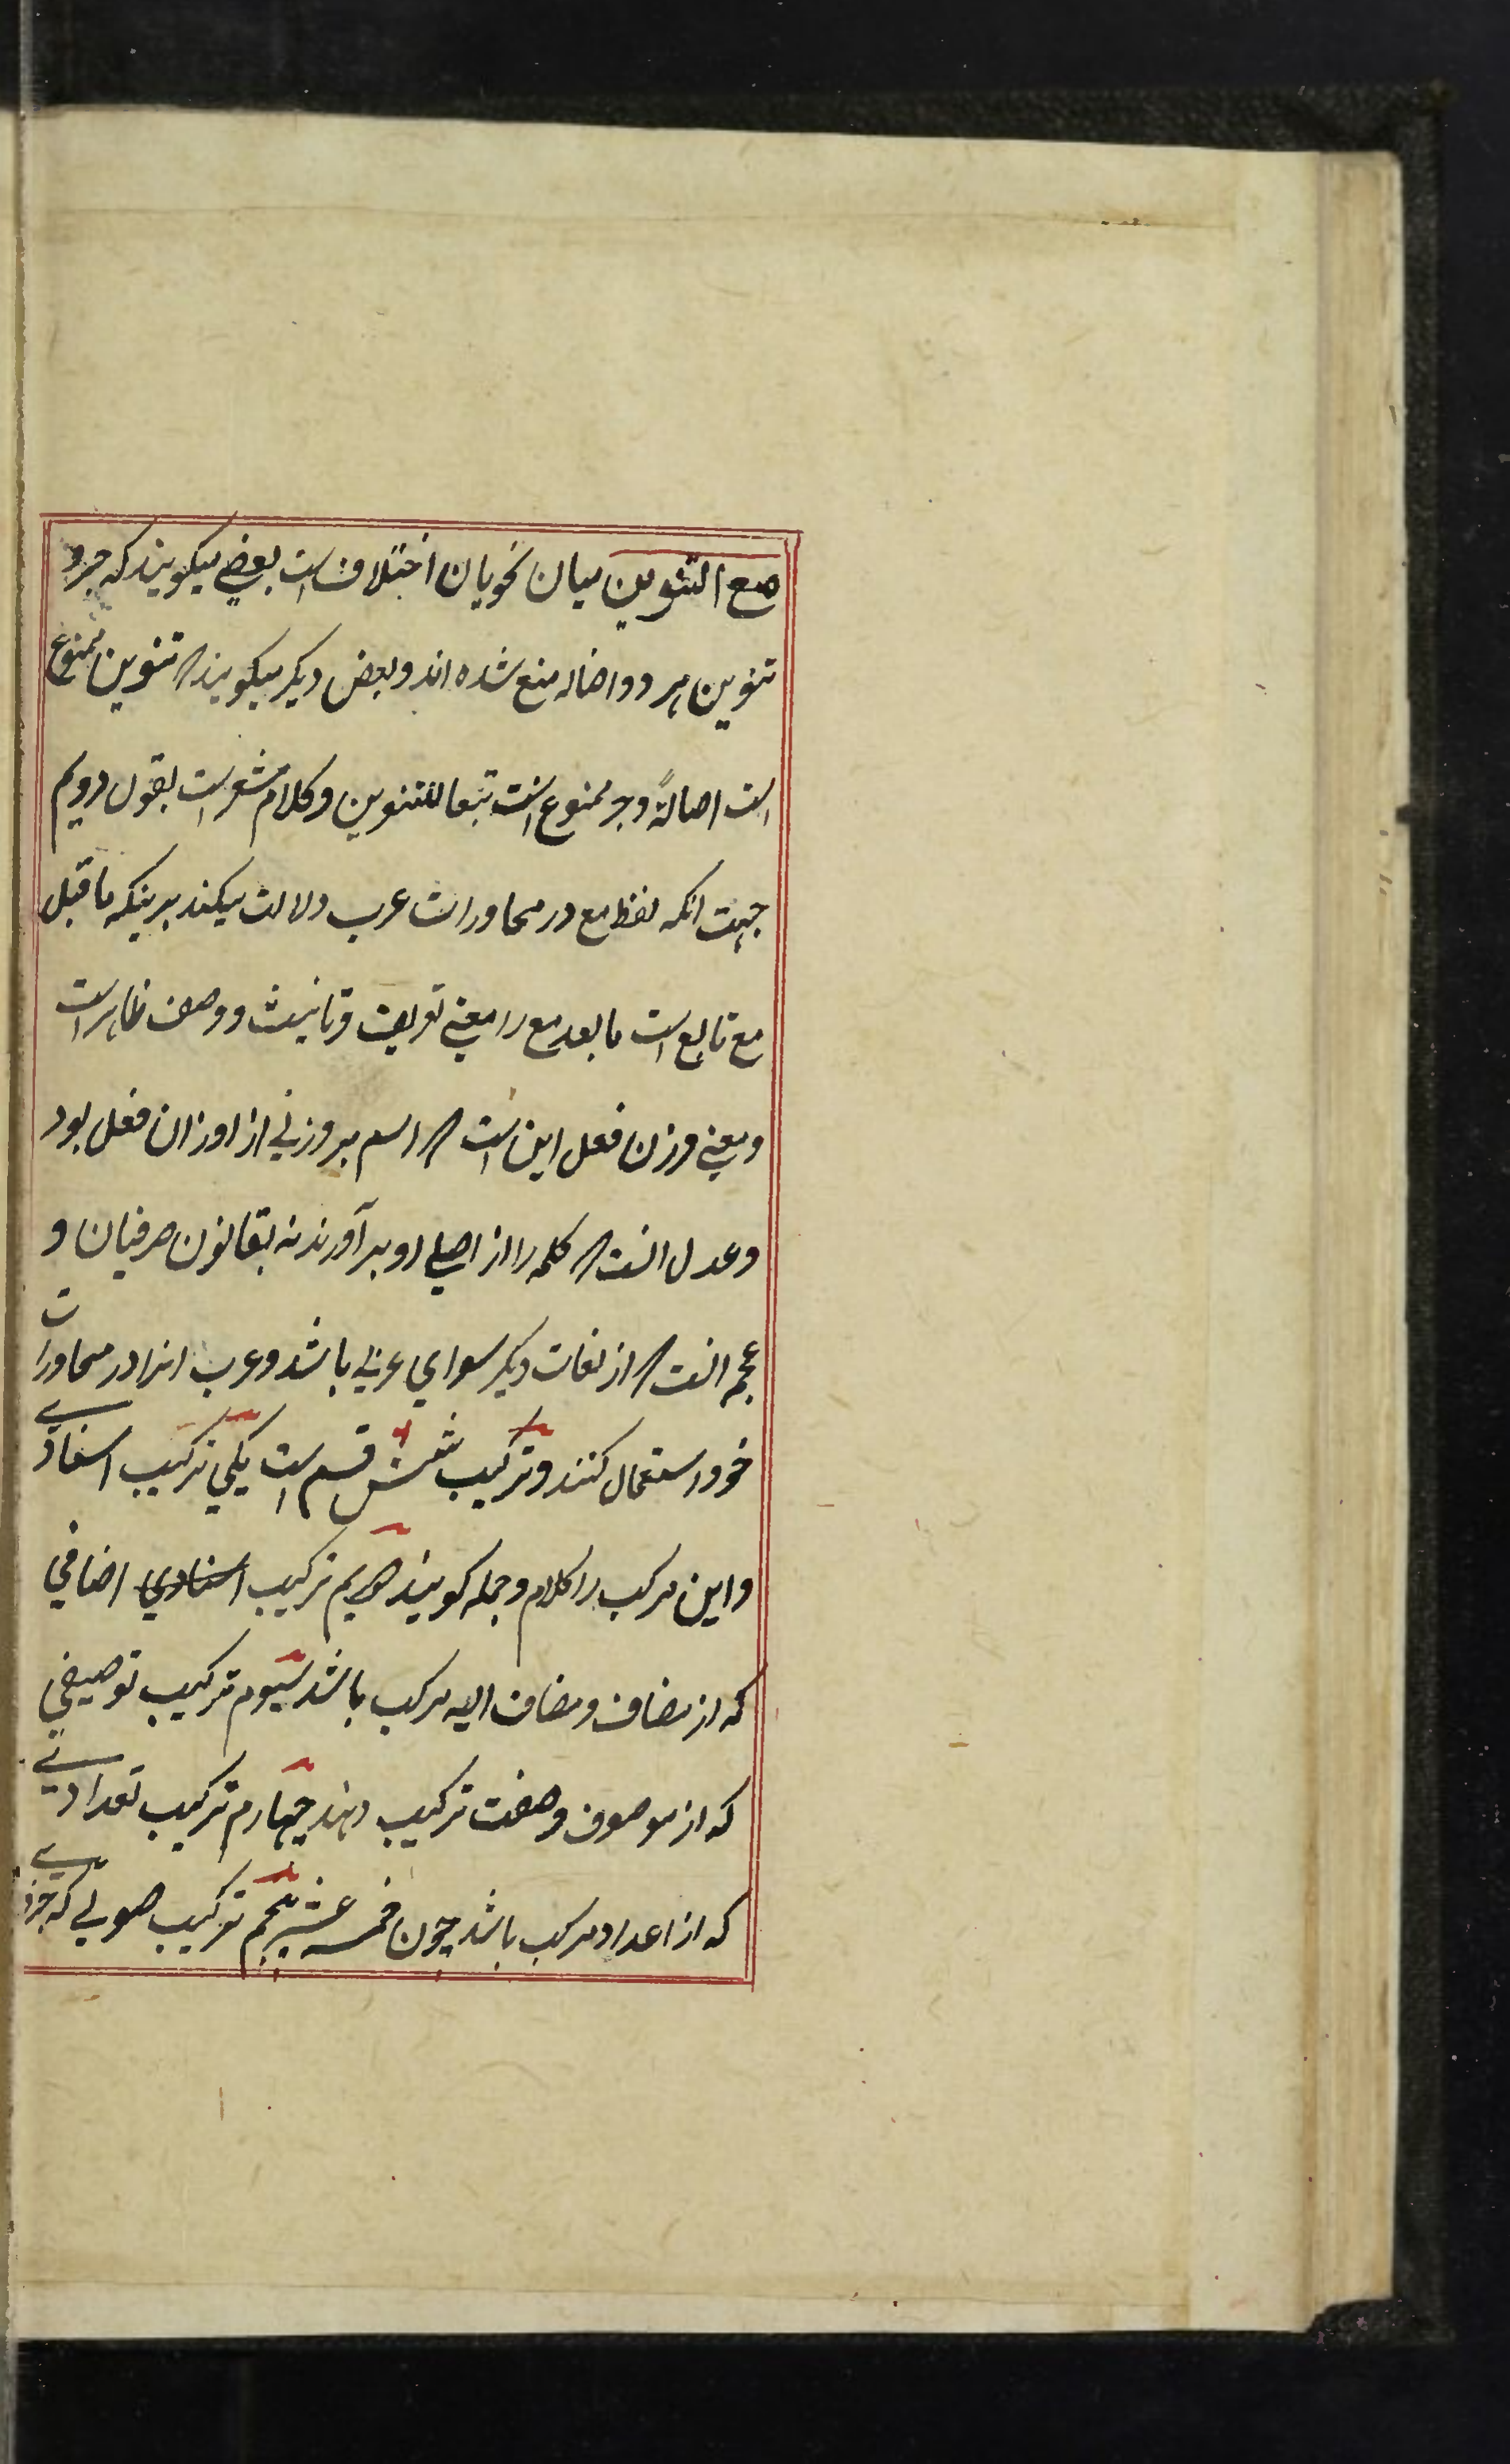 مع التنوین میان نحویان اختلاف است بعضی میکویند که جر و
تنوین هر دو اصاله منع شده اند و بعض دیکر میکویند که تنوین ممنوع
است اصالةً و جر ممنوع است تبعا للتنوین و کلام مشعر است بقول دویم
جهت انکه لفظ مع در محاورات عرب دلالت میکند برینکه ما قبل
مع تابع است ما بعد مع را معنی تعریف و تانیث و وصف ظاهر است
و معنی وزن فعل این است که اسم بر وزنی از اوزان فعل بود
و عدل انست که کلمه را از اصلی او برآورند نه بقانون صرفیان و
عجمه انست که از لغات دیکر سوای عربی باشد و عرب انرا در محاورات
خود استعمال کنند و ترکیب شش قسم است یکی ترکیب اسنادی
و این مرکب را کلام و جمله کویند دویم ترکیب اسنادی اضافی
که از مضاف و مضاف الیه مرکب باشد سیوم ترکیب توصیفی
که از موصوف و صفت ترکیب دهند چهارم ترکیب تعدادی
که از اعداد مرکب باشد چون خمسه عشر پنجم ترکیب صوتی که جزء